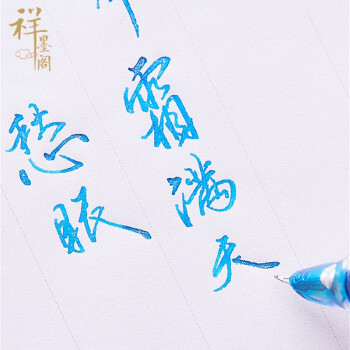 祥墨阁
霜满天
愁眠